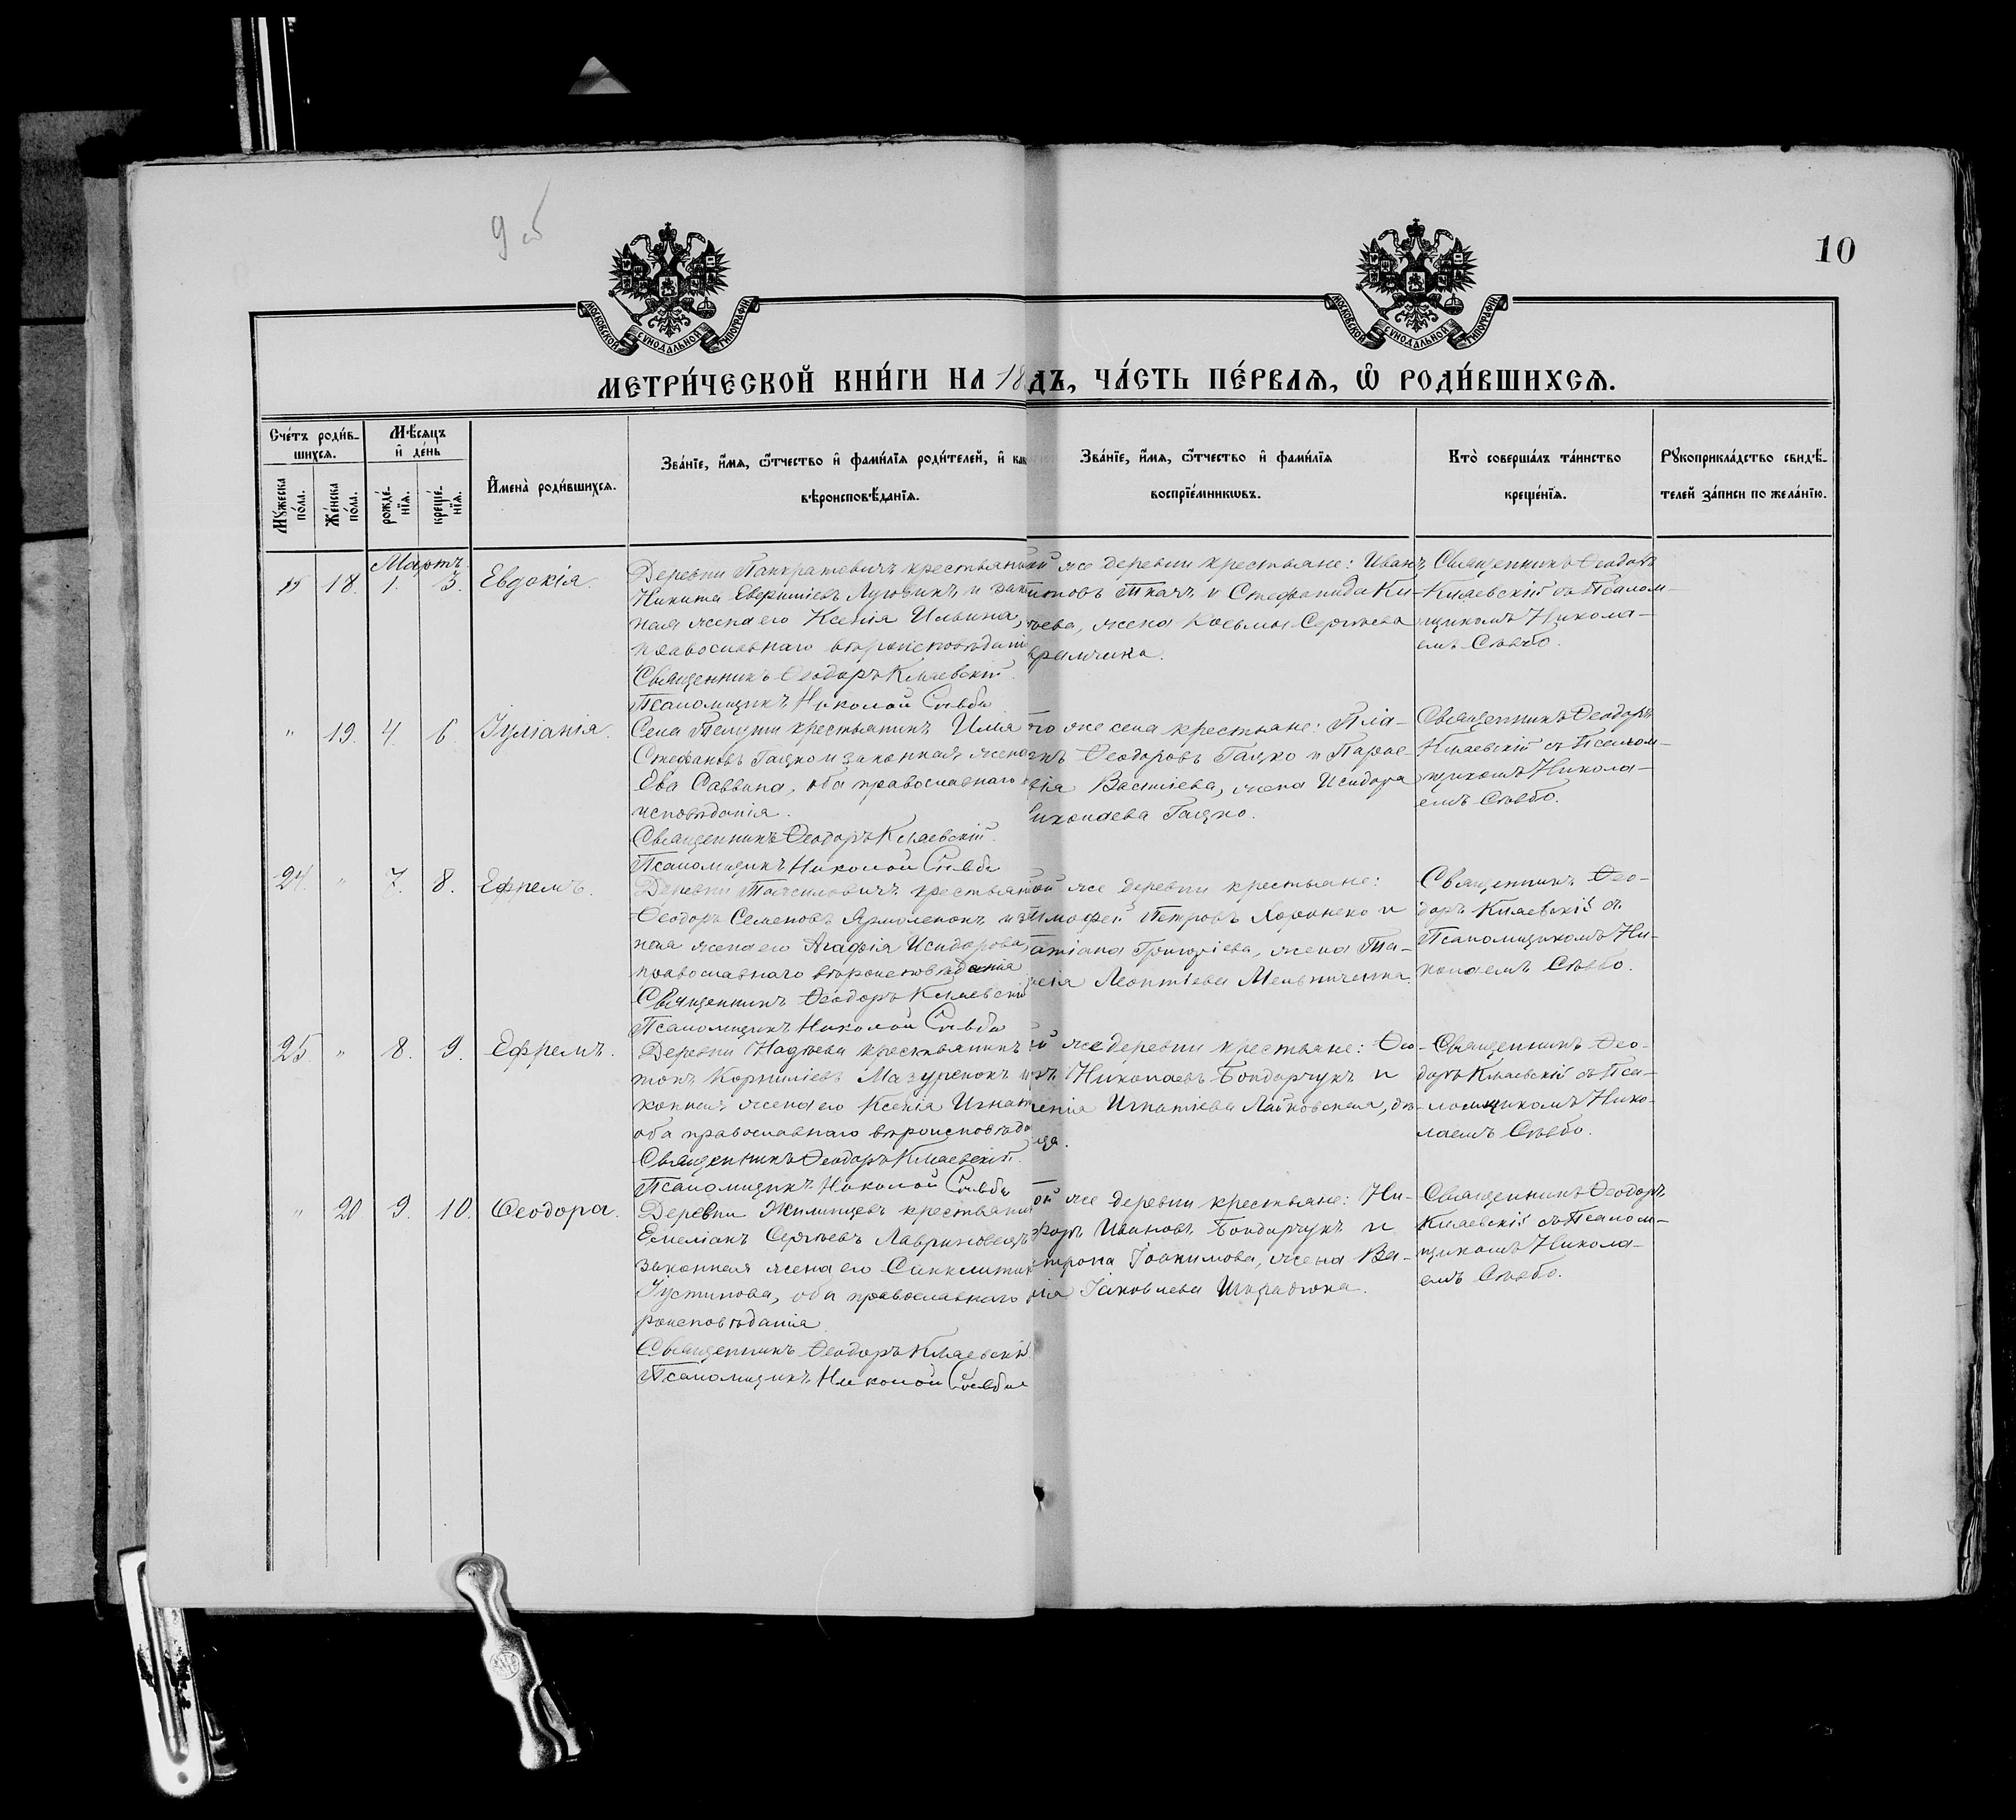 9 об
10
МОСКОВСКОЙ СУНОДАЛЬНОЙ ТИПОГРАФІИ
МОСКОВСКОЙ СУНОДАЛЬНОЙ ТИПОГРАФІИ
МЕТРИ́ЧЕСКОЙ КНИ́ГИ НА 18 ДЪ, ЧА́СТЬ ПЕ́РВАѦ, Ѿ РОДИ́ВШИХСѦ.
Счéтъ роди́в-
шихсѧ.
Мѣ́сѧцъ
и҆ дéнь
Мꙋ́жеска
по́ла.
Же́нска
по́ла.
рождé-
нїѧ.
крещé-
нїѧ.
И҆менà роди́вшихсѧ.
Зва́нїе, и҆́мѧ, ѻ҆́тчество и҆ фами́лїѧ роди́телей, и҆ как
вѣроисповѣ́данїѧ.
Зва́нїе, и҆́мѧ, ѻ҆́тчество и҆ фами́лїѧ
воспрїе́мникѡвъ.
Кто̀ соверша́лъ та́инство
креще́нїѧ.
Рꙋкоприкла́дство свидѣ́-
телей за́писи по жела́нїю.
Мартъ.
" 18. 1. 3. Евдокія.
Деревни Панкратевичъ крестьянин
Никита Евфиміевъ Луговикъ и зак
ная жена его Ксенія Ильина,
православнаго вѣроисповѣданія
Священникъ Ѳеодоръ Клаевскій.
Псаломщикъ Николай Сѣвбо
ой же деревни крестьяне: Иванъ
Ткачъ и Стефанида Ки-
жена Косьмы Сергѣева
Священникъ Ѳеодоръ
Клаевскій съ Псалом-
щикомъ Никола-
емъ Сѣвбо.
" 19. 4. 6. Іуліанія.
Села Телуши крестьянинъ Илія
Стефановъ Гацко и законная жена
Ева Саввина, оба православнаго
исповѣданія.
Священникъ Ѳеодоръ Клаевскій.
Псаломщикъ Николай Сѣвбо
го же села крестьяне: Пла-
Ѳеодоровъ Гацко и Парас-
вія Васильева, жена Исидора
иколаева Гацко.
Священникъ Ѳеодоръ
Клаевскій съ Псалом-
щикомъ Никола-
емъ Сѣвбо.
24. " 7. 8. Ефремъ.
Деревни крестьян
Ѳеодоръ Семеновъ Ярмоленокъ и з
ная жена его Агафія Исидорова,
православнаго вѣроисповѣданія
Священникъ Ѳеодоръ Клаевскій
Псаломщикъ Николай Сѣвбо
ой же деревни крестьяне:
имофей Петровъ и
атіана Григоріева, жена Та-
Леонтіева Мельниченка.
Священникъ Ѳео-
доръ Клаевскій съ
Псаломщикомъ Ни-
колаемъ Сѣвбо.
25. " 8. 9. Ефремъ.
Деревни крестьянинъ
Корниліевъ Мазуренокъ и
конная жена его Ксенія Игнат
оба православнаго вѣроисповѣда
Священникъ Ѳеодоръ Клаевскій.
Псаломщикъ Николай Сѣвбо
й же деревни крестьяне: Ѳео-
ръ Николаевъ Бондарчукъ и
сенія Игнатіева дѣ-
ица.
Священникъ Ѳео-
доръ Клаевскій съ Пса-
ломщикомъ Нико-
лаемъ Сѣвбо.
" 20 9. 10. Ѳеодора.
Деревни крестьянин
Емеліанъ Сергѣевъ
законная жена его Синклитик
Іустинова, оба православнаго
роисповѣданія.
Священникъ Ѳеодоръ Клаевскій.
Псаломщикъ Николай Сѣвбо
ой же деревни крестьяне: Ни-
форъ Ивановъ Бондарчукъ и
Іоакимова, жена Ва-
лія Іаковлева
Священникъ Ѳеодоръ
Клаевскій съ Псалом-
щикомъ Никола-
емъ Сѣвбо.